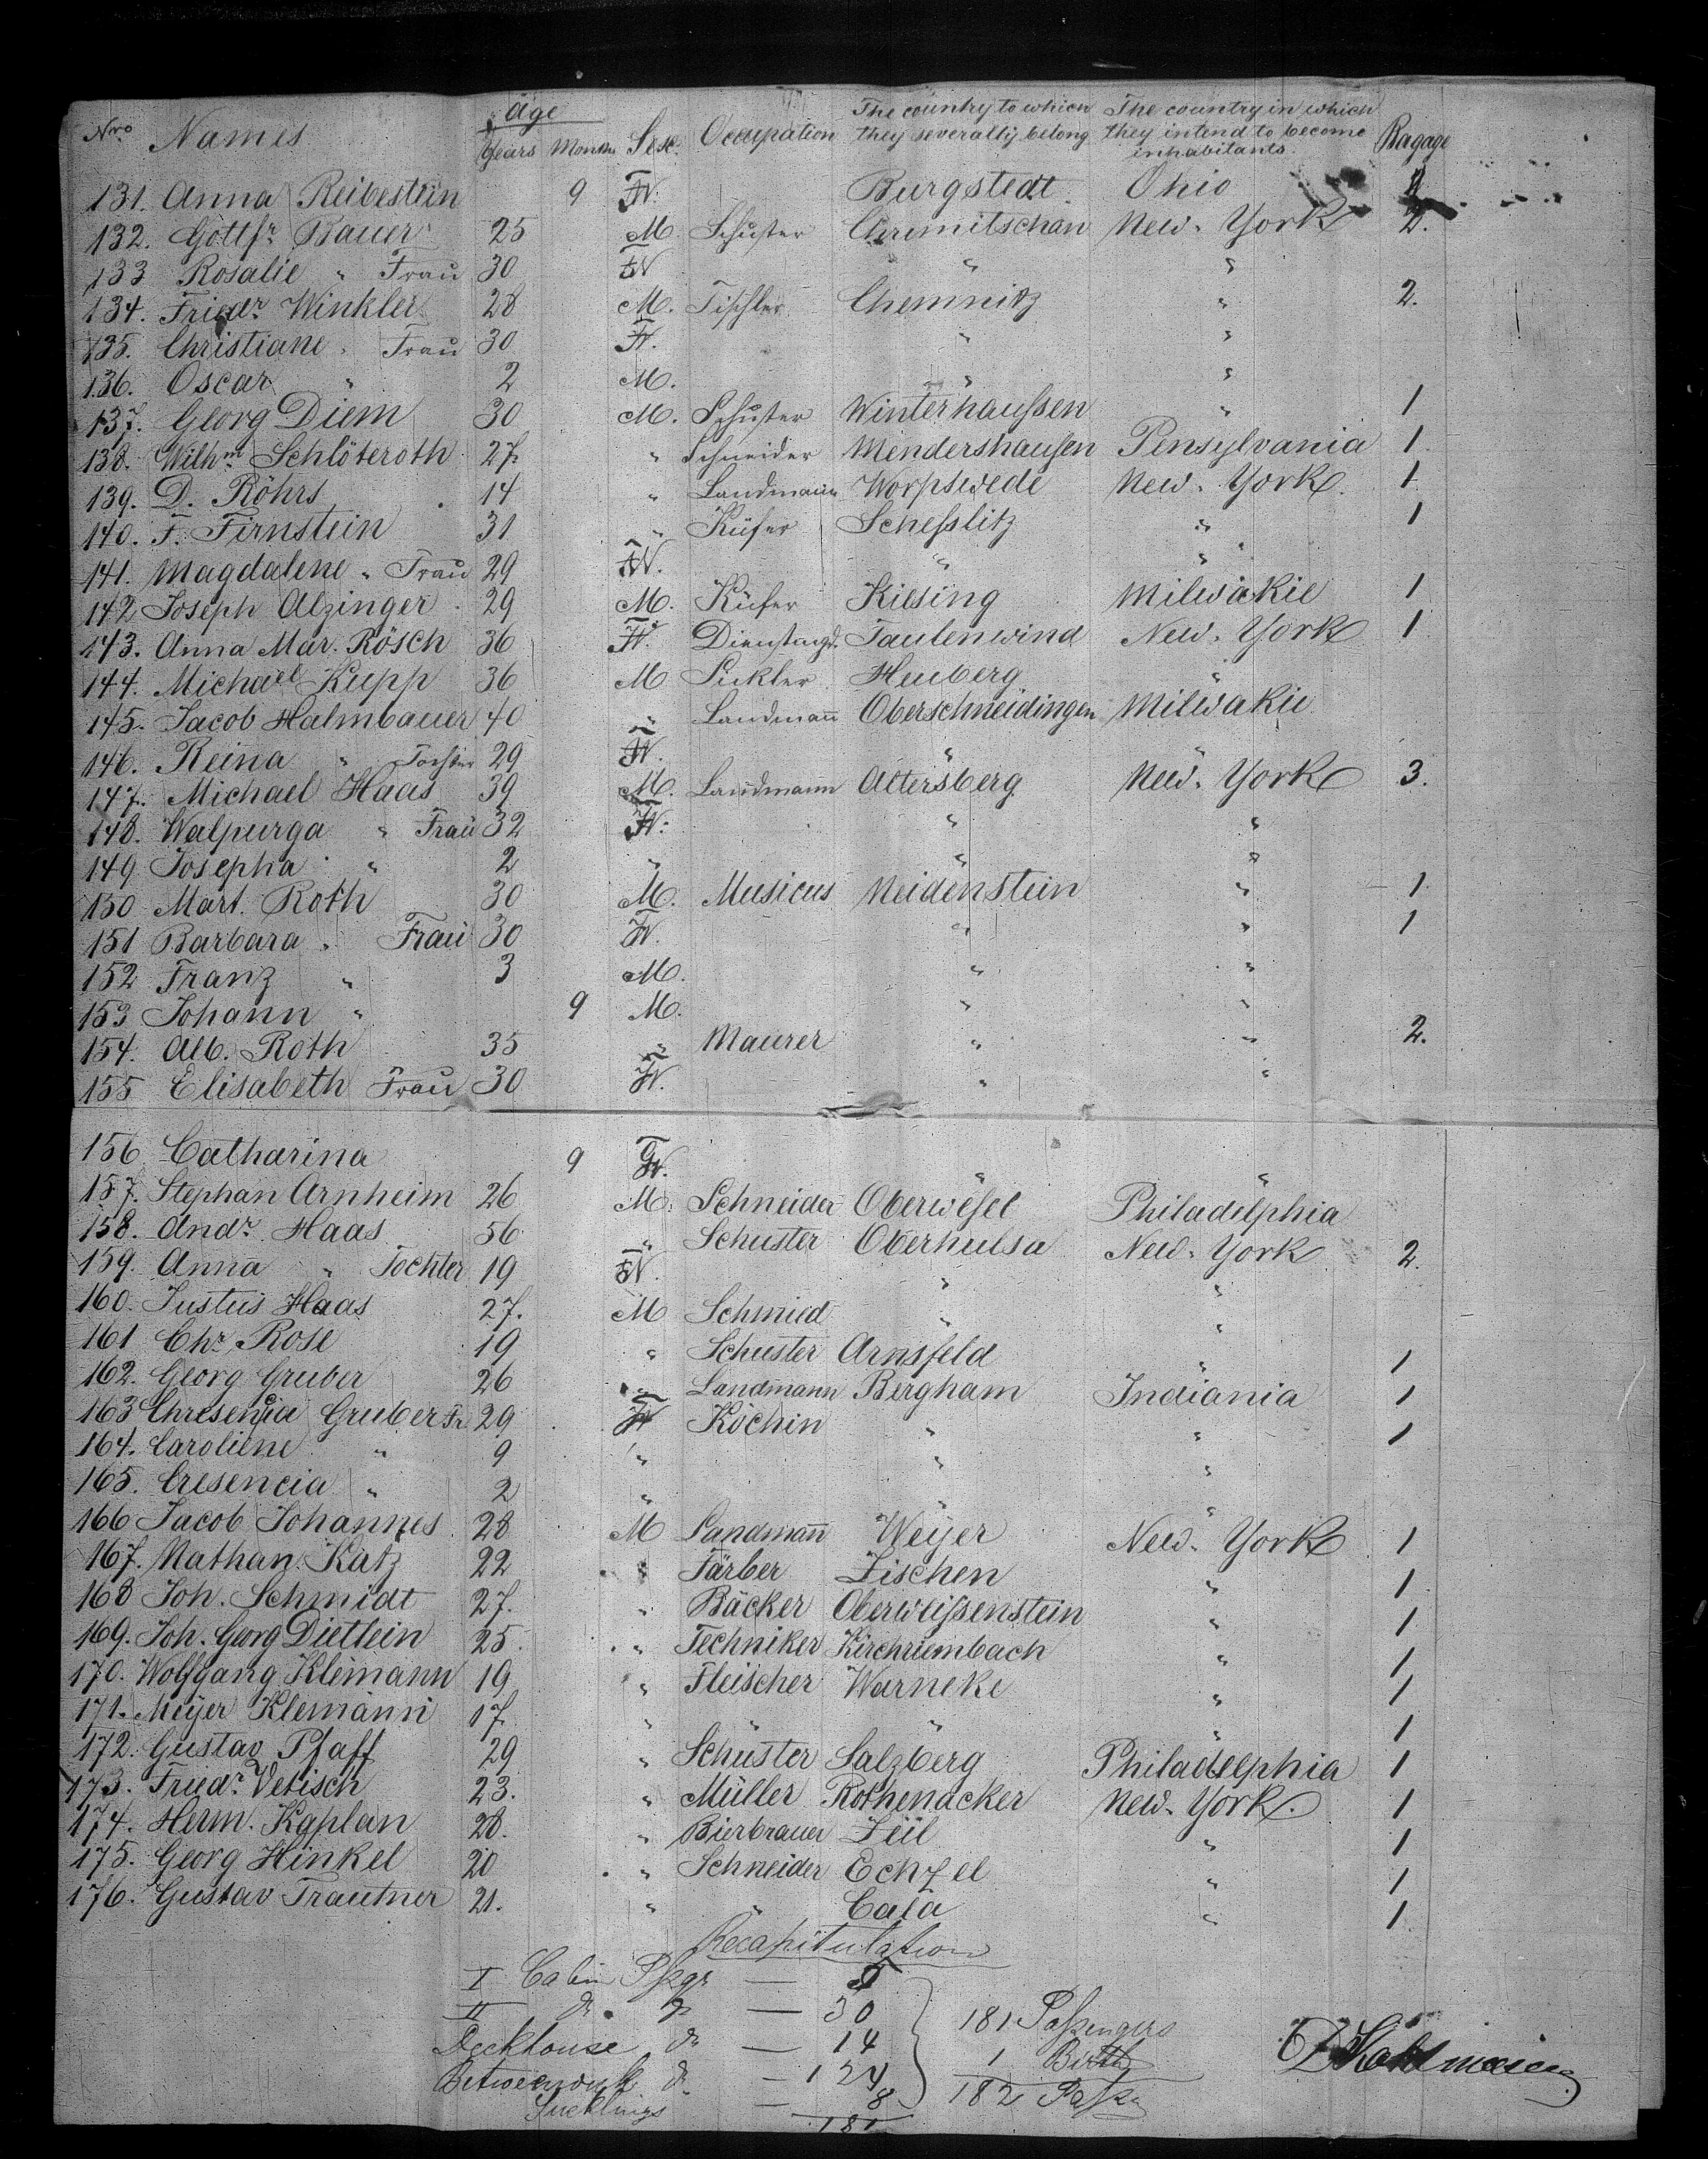 Nro Names Age Years Months Sex. Occupation The country to which they severally belong The country in which they intend to become inhabitants. Bagage
131. Anna Reibestein 9 F. Burgstedt Ohio
132. Gottfr. Bauer 25 M. Schuster New-York 2.
133 Rosalie " Frau 30 F " "
134. Friedr. Winkler 28 M. Tischler Chemnitz " 2.
135. Christiane " Frau 30 F. " "
136. Oscar " 2 M. " "
137. Georg Diem 30 M. Schuster Winterhaussen " 1
138. Wilhm. Schlöteroth 27. " Schneider Mendershausen Pensylvania 1.
139. D. Röhrs 14 " Landmann Worpswede New-York. 1
140. F. Firnstein 31 " Küfer Schesslitz " 1
141. Magdalene " Frau 29 F. " "
142 Joseph Alzinger 29 M. Küfer Kiesing Milwakie 1
143. Anna Mar. Rösch 36 F. Dienstmgd. Taulenwind New-York 1
144. Michael Kupp 36 M Heuberg "
145. Jacob Halmbauer 40 " Landmann Oberschneidingen Milwakie
146. Reina " Tochter 29 F. " "
147. Michael Haas 39 M. Landmann Altersberg New-York 3.
148. Walpurga " Frau 32 F. " "
149 Josepha " 2 " " "
150 Mart. Roth 30 M. Musicus Neidenstein " 1
151 Barbara " Frau 30 F. " " 1
152 Franz " 3 M. " "
153 Johann " 9 M. " "
154. Alb. Roth 35 " Maurer " " 2.
155 Elisabeth Frau 30 F. " "
156 Catharina 9 F. " "
157. Stephan Arnheim 26 M. Schneider Oberwesel Philadelphia
158. Andr. Haas 56 " Schuster Oberhulsa New-York 2.
159. Anna " Tochter 19 F. " "
160. Justus Haas 27. M Schmied " "
161 Chr. Rose 19 " Schuster Arnsfeld " 1
162. Georg Gruber 26 " Landmann Bergham Indiania 1
163 Chresencia Gruber Fr. 29 F Köchin " " 1
164. Caroliene " 9 " " "
165. Cresencia " 2 " " "
166 Jacob Johannes 28 M Landmann Weijer New-York 1
167. Nathan Katz 22 " Färber Zischen " 1
168 Joh. Schmidt 27. " Bäcker Oberweissenstein " 1
169. Joh. Georg Dietlein 25. " Techniker Kirchrümbach " 1
170. Wolfgang Klemann 19 " Fleischer Warneke " 1
171. Meijer Klemann 17. " " " 1
172. Gustav Pfaff 29 " Schuster Salzberg Philadelphia 1
173. Friedr. Vetisch 23. " Müller Rothenacker New-York. 1
174. Herm. Kaplan 28. " Bierbrauer Zeil " 1
175. Georg Hinkel 20 " Schneider Echzel " 1
176. Gustav Trautner 21. " " Cala " 1.
Recapitulation
I Cabin Pssgr —
II do. do — 30 181 Passengers
Deckhouse do — 14 1 Birth
Betweendeck do — 124 182 Passr
Sucklings — 8
181